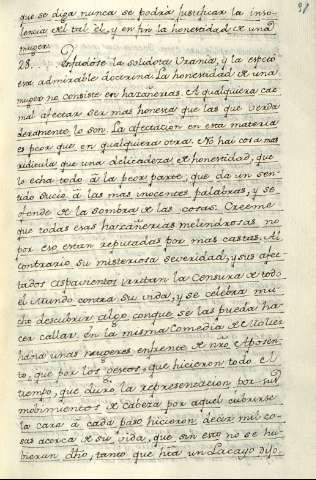 31
que se diga nunca se podrá justificar la inso-
lencia del tal él, y en fin la honestidad de una
muger.
28.. Enfadóse la solidora Urania, y la espetó
esta admirable doctrina. La honestidad de una
muger no consiste en hazañerias. A qualquiera cae
mal afectar ser mas honesta que las que verda
deramente lo son. La afectacion en esta materia
es peor que en qualquiera otra. No hai cosa mas
ridicula que una delicadeza de honestidad, que
lo echa todo à la peor parte, que da un sen-
tido sucio à las mas inocentes palabras, y se
ofende de la sombra de las cosas. Creeme
que todas esas hazañerias melindrosas no
por eso estan reputadas por mas castas. Al
contrario su misteriosa severidad, y sus afec-
tados aspavientos irritan la censura de todo
el Mundo contra su vida, y se celebra mu-
cho descubrir algo, con que se las pueda ha-
cer callar. en la misma Comedia de Molier
havia unas mugeres enfrente de nro Aposen-
to, que por los gestos, que hicieron todo el
tiempo, que duró la representacion, por sus
mobimientos de cabeza por aquel cubrirse
la cara à cada paso hicieron decir mil co-
sas acerca de su vida, que sin esto no se hu-
bieran dho, tanto que hta un Lacayo dijo.